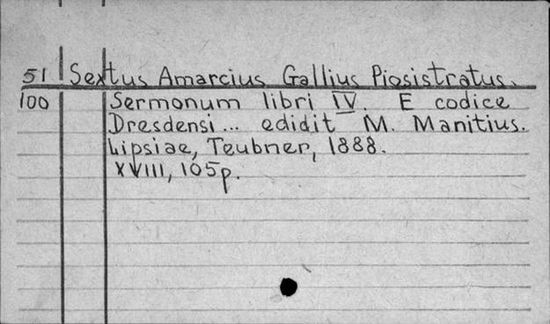 51 Sextus Amarcius Gallius Piosistratus.
100 Sermonum libri IV. E codice
Dresdensi... edidit M. Manitius.
Lipsiae, Teubner, 1888.
XVIII, 105p.